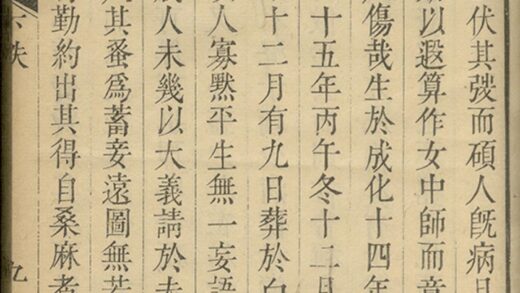 伏其弢而碩人旣病
以遐算作女中師而
傷哉生於成化十四年
十五年丙午冬十二
十二月有九日葬於白
人寡黙平生無一妄語
人未幾以大義請於
其蚤爲蓄妾遠圖無若
勤約出其得自桑麻者
下帙 九